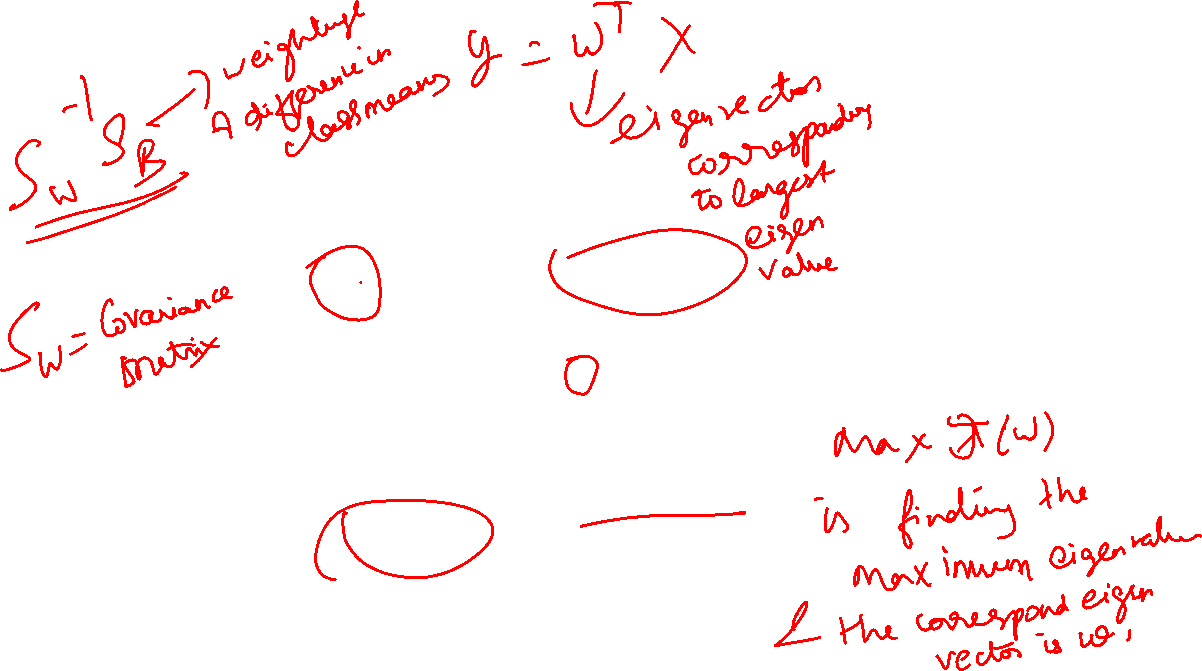 S_W^{-1} S_B → weightage
A difference in
class means
y = w^T X
eigenvector
corresponding
to largest
eigen
value
S_W = Covariance
matrix
max J(w)
is finding the
maximum eigenvalue
& the correspond eigen
vector is w,